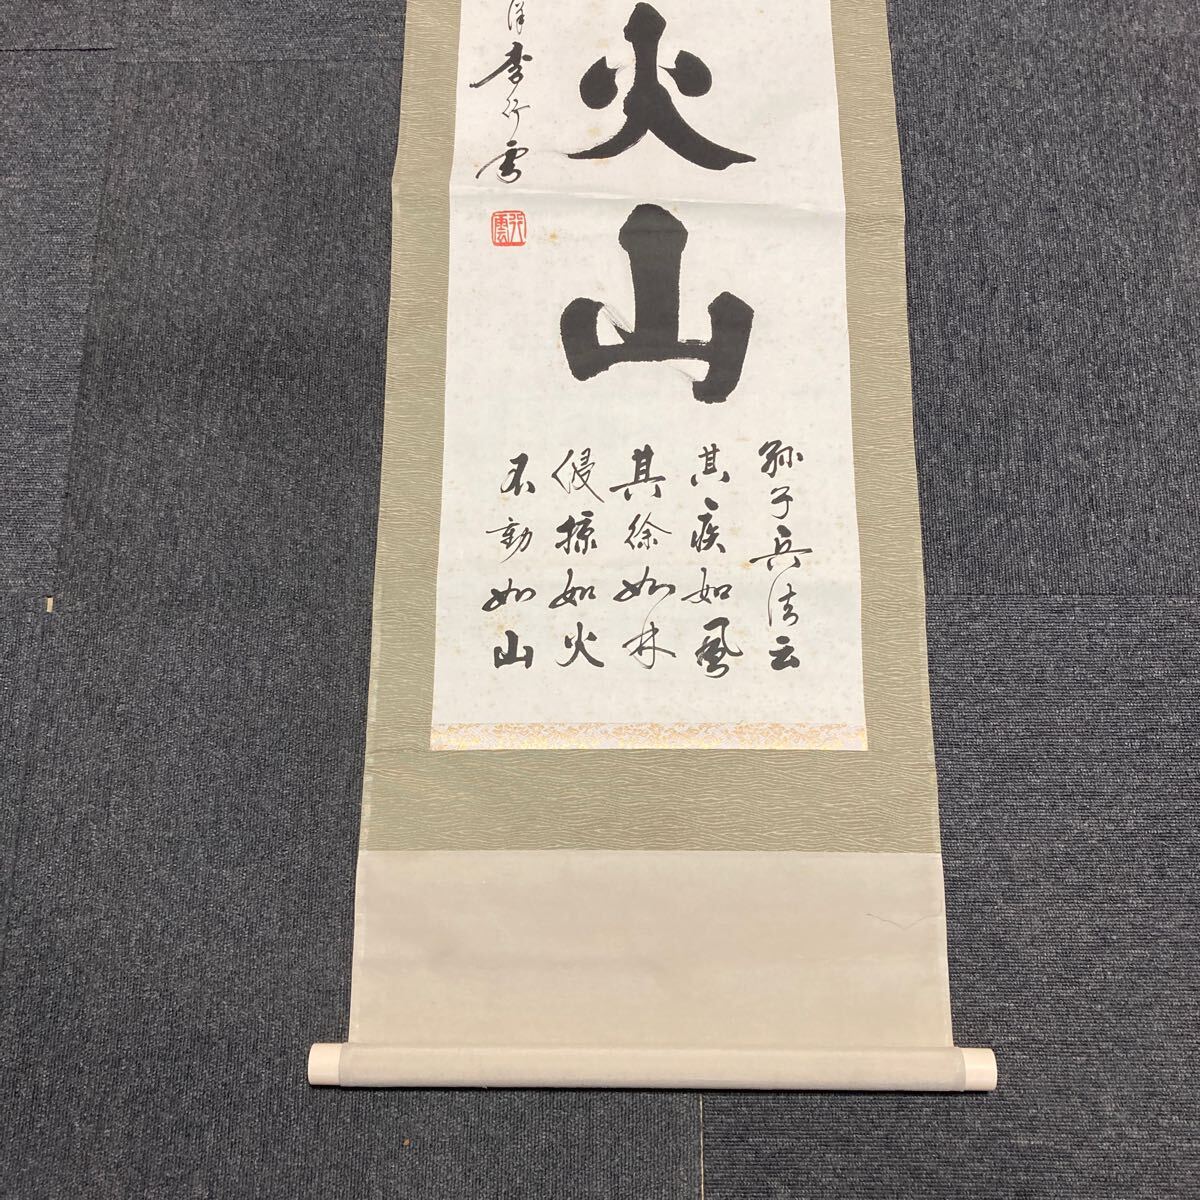 火山
孫子兵法云
其疾如風
其徐如林
侵掠如火
不動如山
李行雲
行雲